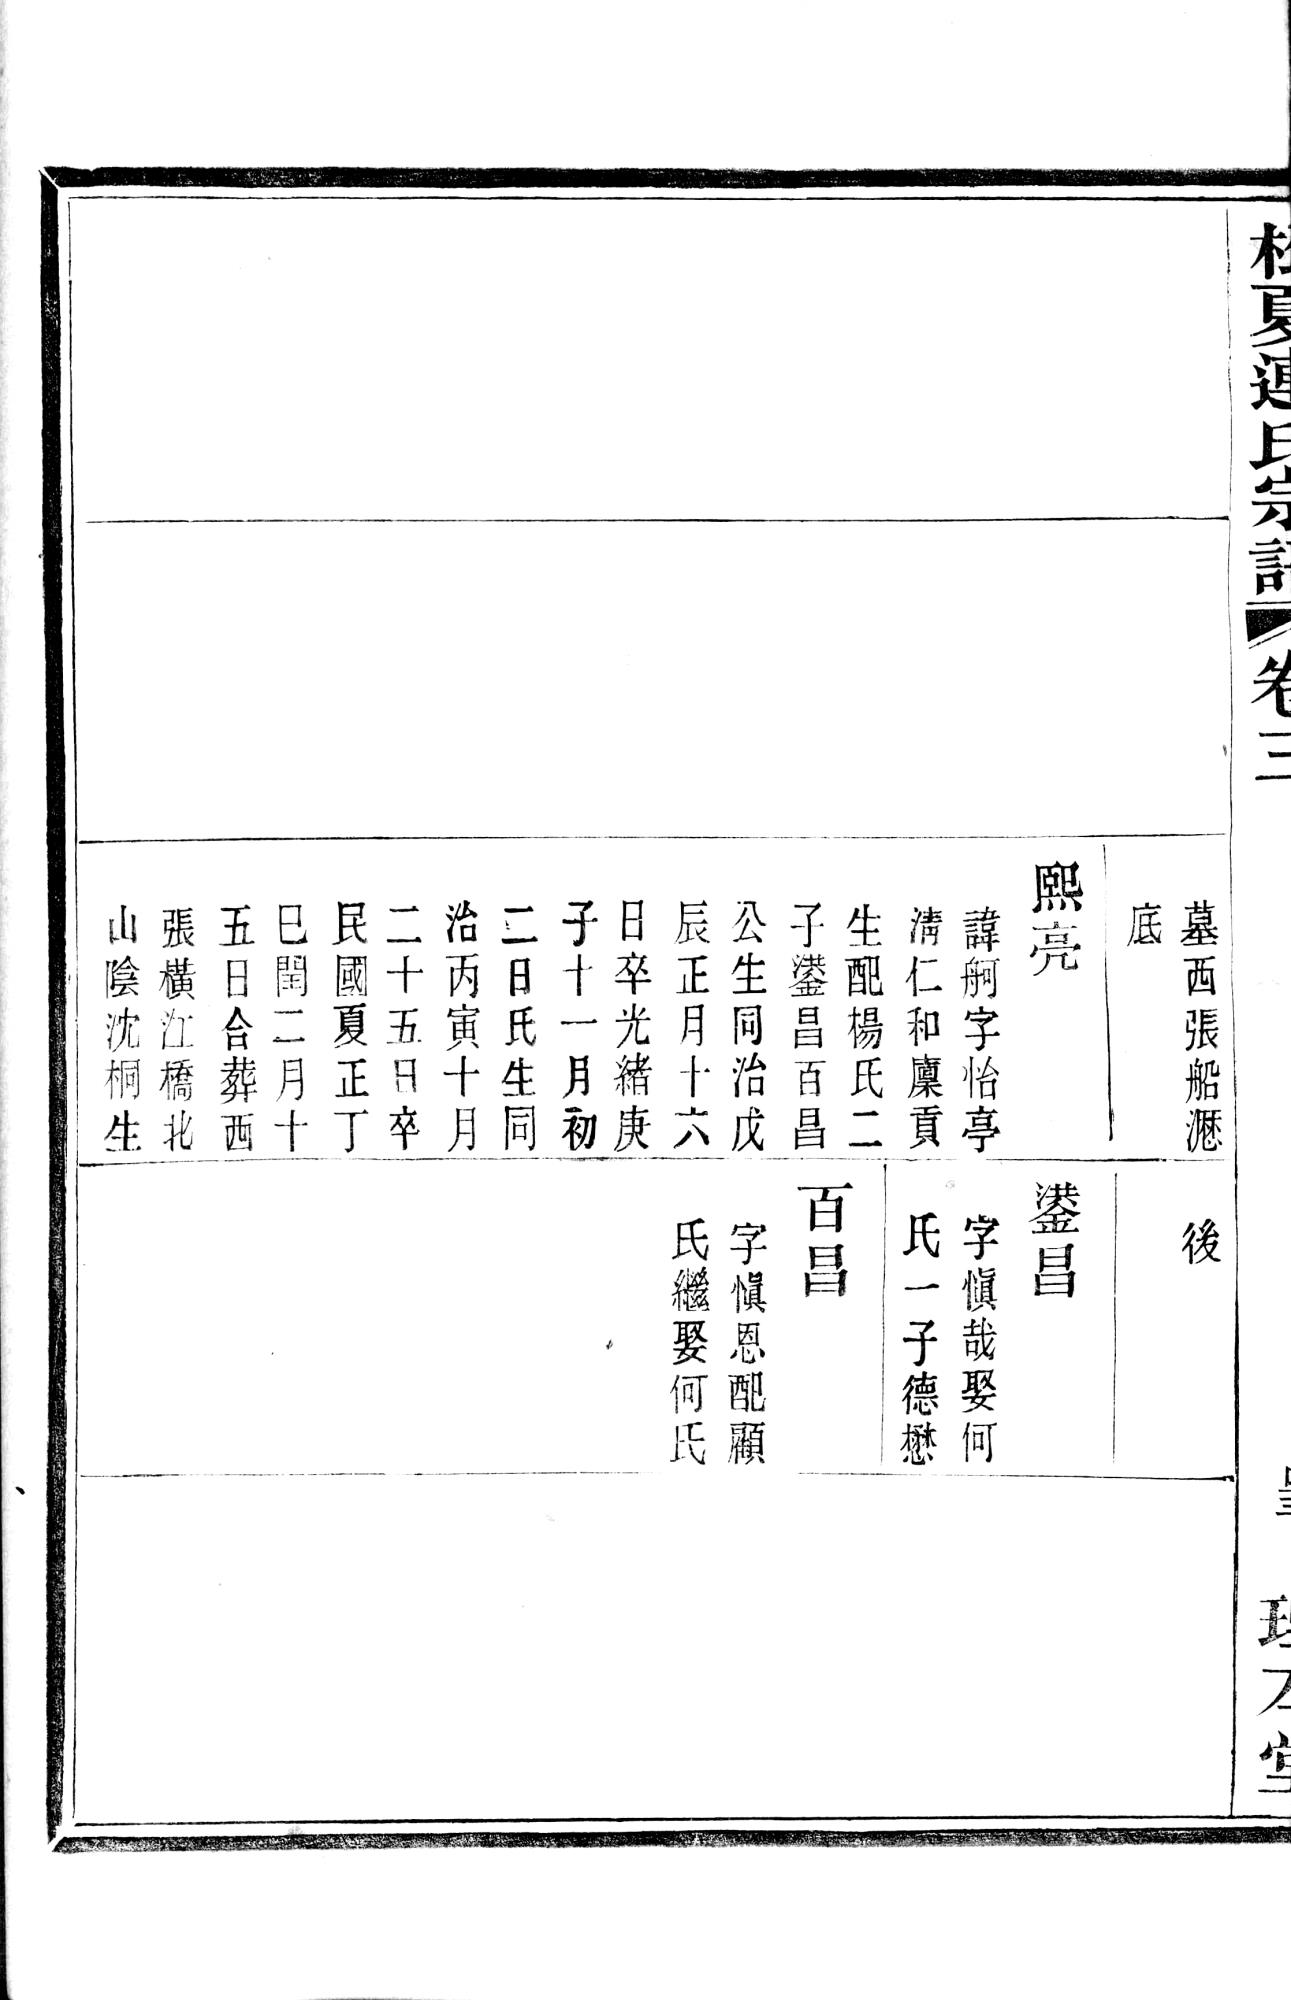 松夏連氏宗譜
卷三
墓西張船瀝
底
熙亮
諱舸字怡亭
清仁和廩貢
生配楊氏二
子瀅昌百昌
公生同治戊
辰正月十六
日卒光緒庚
子十一月初
二日氏生同
治丙寅十月
二十五日卒
民國夏正丁
巳閏二月十
五日合葬西
張橫江橋北
山陰沈桐生
後
瀅昌
字愼哉娶何
氏一子德懋
百昌
字愼恩配顧
氏繼娶何氏